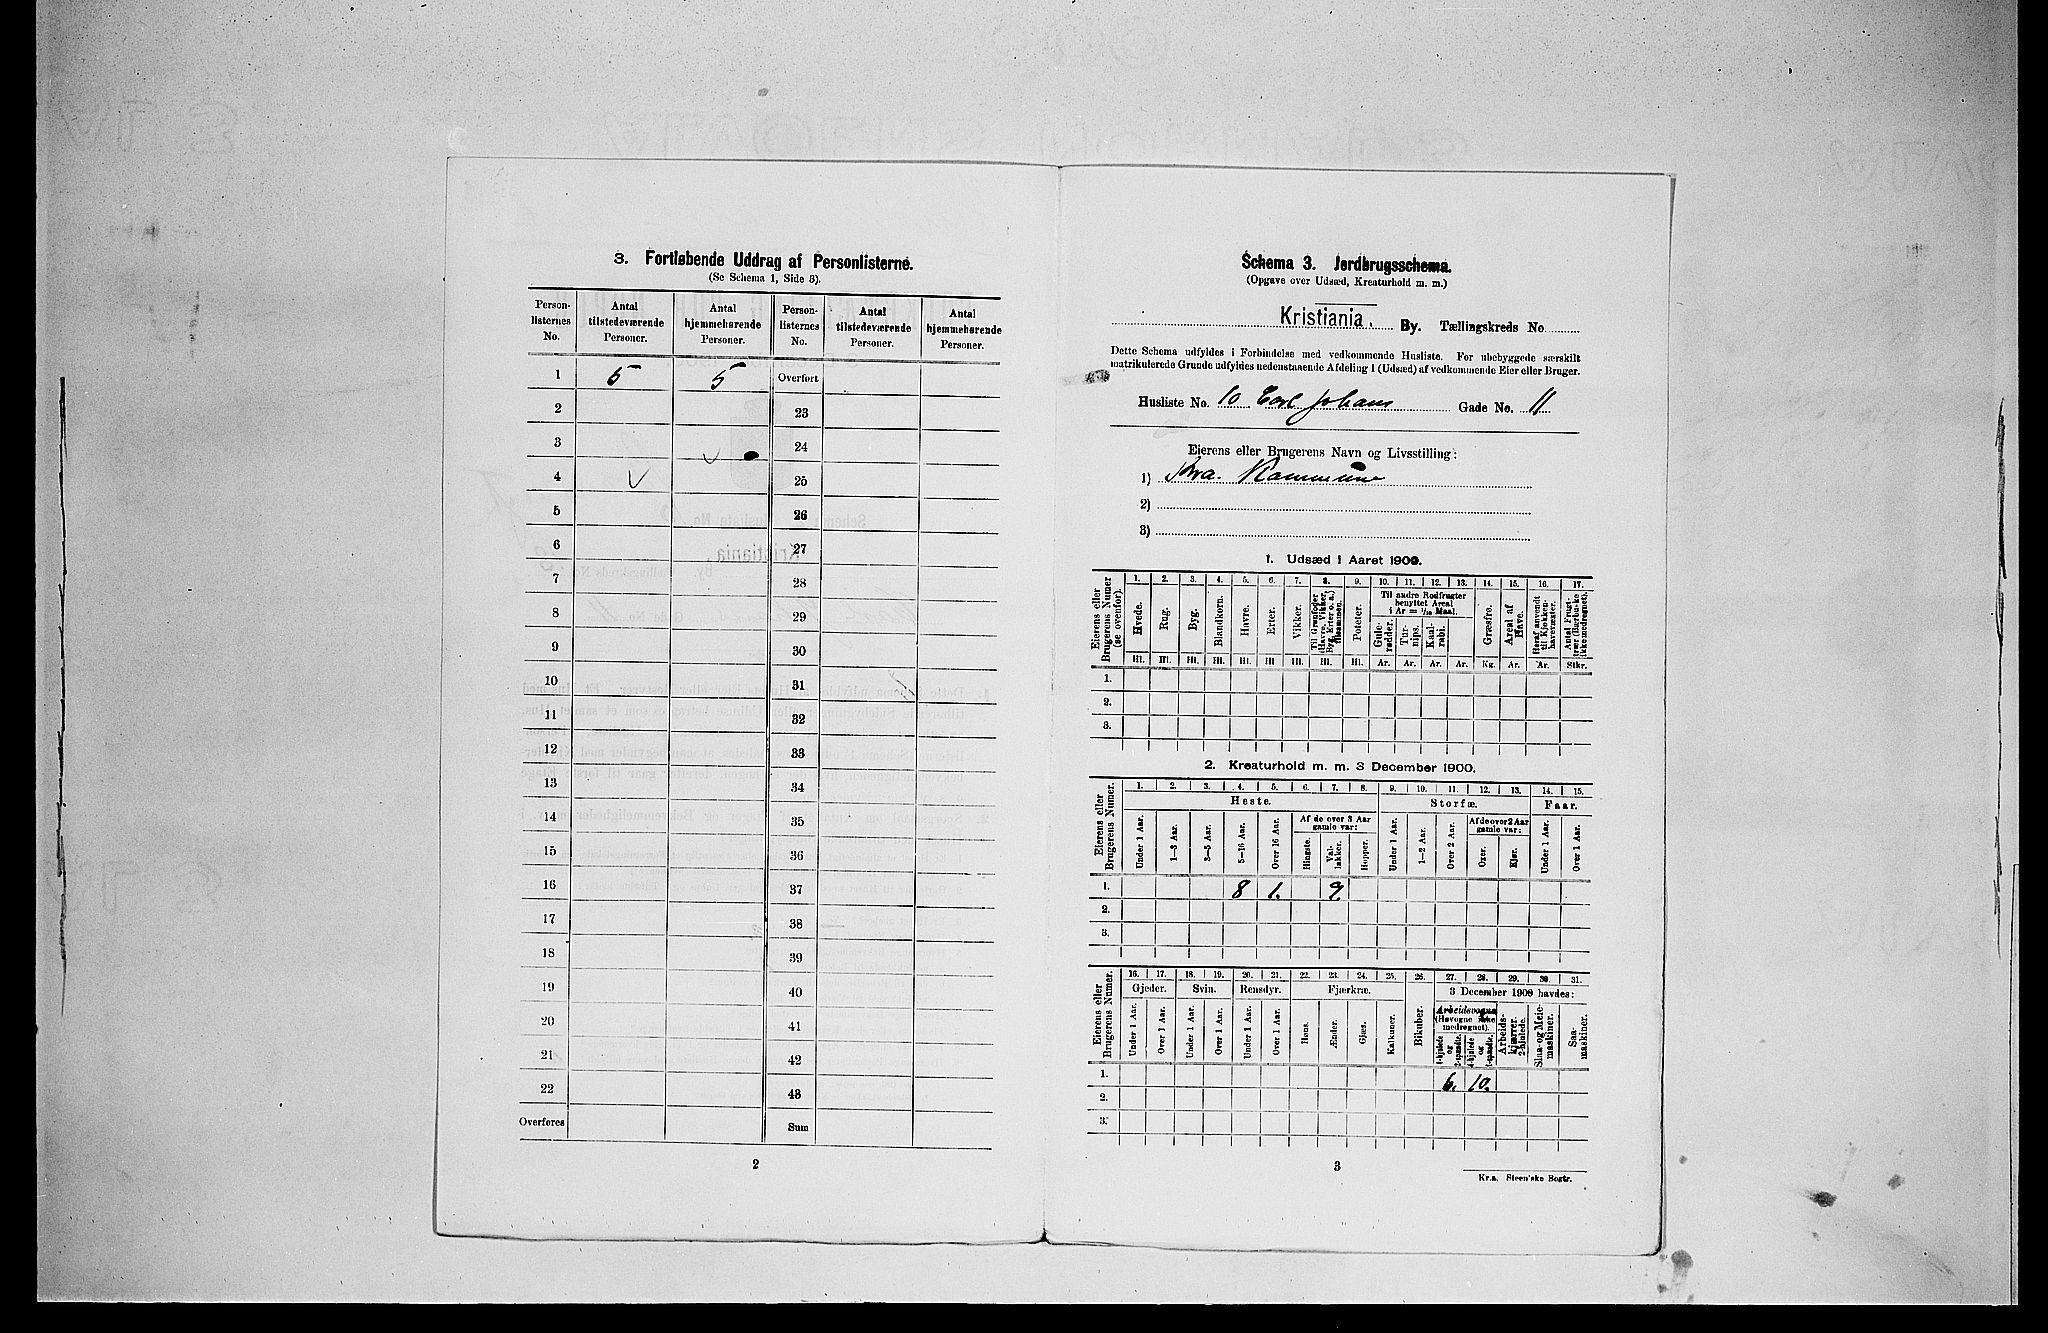 3. Fortløbende Uddrag af Personlisterne.
(Se Schema 1, Side 3).
Person-listernes No. Antal tilstedeværende Personer. Antal hjemmehørende Personer. Person-listernes No. Antal tilstedeværende Personer. Antal hjemmehørende Personer.
1 5 5 Overført
2 23
3 24
4 25
5 26
6 27
7 28
8 29
9 30
10 31
11 32
12 33
13 34
14 35
15 36
16 37
17 38
18 39
19 40
20 41
21 42
22 43
Overføres Sum
2
Schema 3. Jordbrugsschema.
(Opgave over Udsæd, Kreaturhold m. m.)
Kristiania. By. Tællingskreds No
Dette Schema udfyldes i Forbindelse med vedkommende Husliste. For ubebyggede særskilt
matrikulerede Grunde udfyldes nedenstaaende Afdeling 1 (Udsæd) af vedkommende Eier eller Bruger.
Husliste No. 10 Carl Johans Gade No. 11
Eierens eller Brugerens Navn og Livsstilling:
1) Kra. Kommune
2)
3)
1. Udsæd i Aaret 1900.
Eierens eller Brugerens Numer (se ovenfor).
1. 2. 3. 4. 5. 6. 7. 8. 9. 10. 11. 12. 13. 14. 15. 16. 17.
Hvede. Rug. Byg. Blandkorn. Havre. Erter. Vikker. Til Grønfoder (Havre, Vikker, Byg, Erter o. a.) tilsammen. Poteter.
Til andre Rodfrugter benyttet Areal i Ar = 1/10 Maal.
Gule-rødder. Tur-nips. Kaal-rabi. Græsfrø. Areal af Have. Heraf anvendt til Kjøkken-havevæxter. Antal Frugt-trær (Bærbuske ikke medregnet).
Hl. Hl. Hl. Hl. Hl. Hl. Hl. Hl. Hl. Ar. Ar. Ar. Ar. Kg. Ar. Ar. Stkr.
1.
2.
3.
2. Kreaturhold m. m. 3 December 1900.
Eierens eller Brugerens Numer.
1. 2. 3. 4. 5. 6. 7. 8. 9. 10. 11. 12. 13. 14. 15.
Heste. Storfæ. Faar.
Under 1 Aar. 1—3 Aar. 3—5 Aar. 5—16 Aar. Over 16 Aar. Af de over 3 Aar gamle var: Hingste. Val-lakker. Hopper. Under 1 Aar. 1—2 Aar. Over 2 Aar. Af de over 2 Aar gamle var: Oxer. Kjør. Under 1 Aar. Over 1 Aar.
1. 8 1. 9.
2.
3.
Eierens eller Brugerens Numer.
16. 17. 18. 19. 20. 21. 22. 23. 24. 25. 26. 27. 28. 29. 30. 31.
Gjeder. Svin. Rensdyr. Fjærkræ. 3 December 1900 havdes:
Under 1 Aar. Over 1 Aar. Under 1 Aar. Over 1 Aar. Under 1 Aar. Over 1 Aar. Høns. Ænder. Gjæs. Kalkuner. Bikuber. Arbeidsvogne (Høvogne ikke medregnet). 4-hjulede og 2-spændte. 4-hjulede og 1-spændte. Arbeids-kjærrer. 2-hjulede. Slaa- og Meie-maskiner. Saa-maskiner.
1. 6. 10.
2.
3.
3
Kr.a. Steen'ske Bogtr.